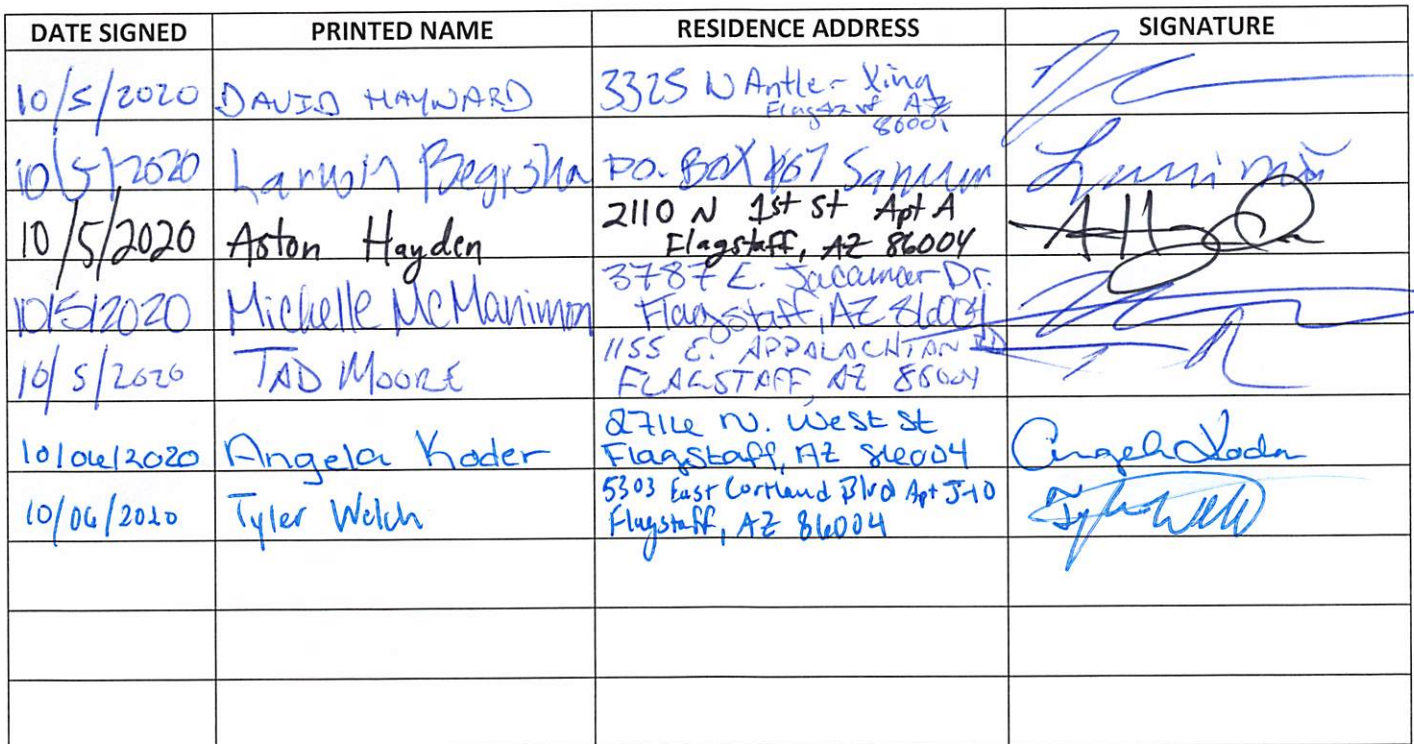 DATE SIGNED PRINTED NAME RESIDENCE ADDRESS SIGNATURE
10/5/2020 DAVID HAYWARD 3325 N Antler Xing
Flagstaff AZ
86001
10/5/2020 Begisha P.O. BOX
10/5/2020 Aston Hayden 2110 N 1st St Apt A
Flagstaff, AZ 86004
10/5/2020 Michelle McManimon 3787 E. Jacamar Dr.
Flagstaff, AZ 86004
10/5/2020 TAD MOORE 1155 E. APPALACHIAN RD
FLAGSTAFF AZ 86004
10/06/2020 Angela Koder 2716 N. West St
Flagstaff, AZ 86004 Angela Koder
10/06/2020 Tyler Welch 5303 East Cortland Blvd Apt J-10
Flagstaff, AZ 86004